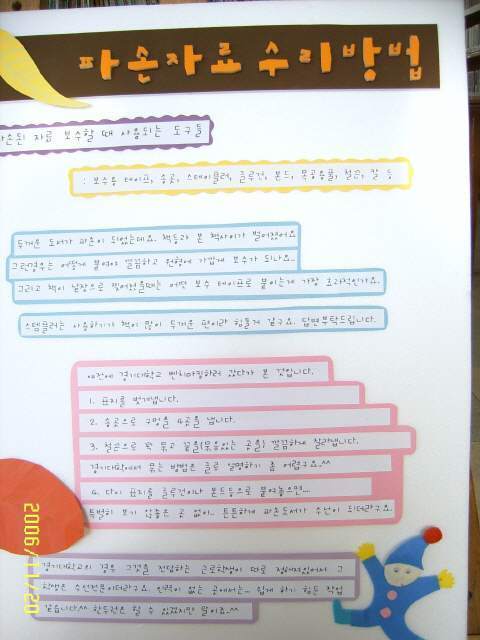 파손자료수리방법
파손된 자료 보수할 때 사용되는 도구들
: 보수용 테이프, 송곳, 스테이플러, 글루건, 본드, 목공용풀, 철끈, 칼 등
두꺼운 도서가 파손이 되었는데요. 책등과 본 책사이가 벌어졌어요
그런경우는 어떻게 붙여야 깔끔하고 원형에 가깝게 보수가 되나요..
그리고 책이 낱장으로 떨어졌을때는 어떤 보수 테이프로 붙이는게 가장 효과적인가요.
스템플러는 사용하기가 책이 많이 두꺼운 편이라 힘들게 같구요. 답변부탁드립니다.
예전에 경기대학교 벤치마킹하러 갔다가 본 것입니다.
1. 표지를 벗겨냅니다.
2. 송곳으로 구멍을 4곳을 냅니다.
3. 철끈으로 꽉 묶고 끝을(묶음있는 곳을) 깔끔하게 잘라냅니다.
경기대학에서 묶는 방법은 글로 설명하기 좀 어렵구요.^^
4. 다시 표지를 글루건이나 본드등으로 붙여놓으면...
특별히 보기 안좋은 곳 없이.. 튼튼하게 파손도서가 수선이 되더라구요.
경기대학교의 경우 그것을 전담하는 근로학생이 따로 정해져있어서 그
학생은 수선전문이더라구요. 인력이 없는 곳에서는.. 쉽게 하기 힘든 작업
같습니다.^^ 한두권은 할 수 있겠지만 말이죠.^^
2006/11/20